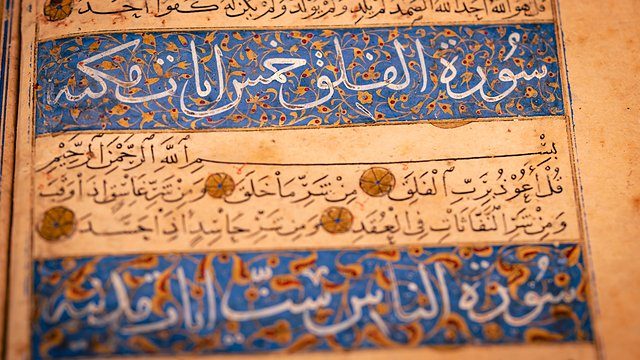 قل هو الله احد الله الصمد لم يلد ولم يولد ولم يكن له كفوا احد
سورة الفلق خمس ايات مكية
بسم الله الرحمن الرحيم
قل اعوذ برب الفلق من شر ما خلق ومن شر غاسق اذا وقب
ومن شر النفاثات في العقد ومن شر حاسد اذا حسد
سورة الناس ست ايات مدنية